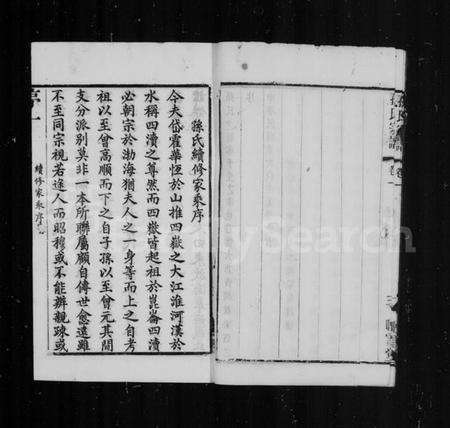 孫氏續修家乘序
今夫岱霍華恒於山推四嶽之大江淮河漢於
水稱四瀆之尊然而四嶽皆起祖於崑崙四瀆
必朝宗於渤海猶夫人之一身等而上之自考
祖以至曾高順而下之自子孫以至曾元其間
支分派別莫非一本所聯屬顧自傳世愈遠雖
不至同宗視若途人而昭穆或不能辨親疎或
續修家乘序